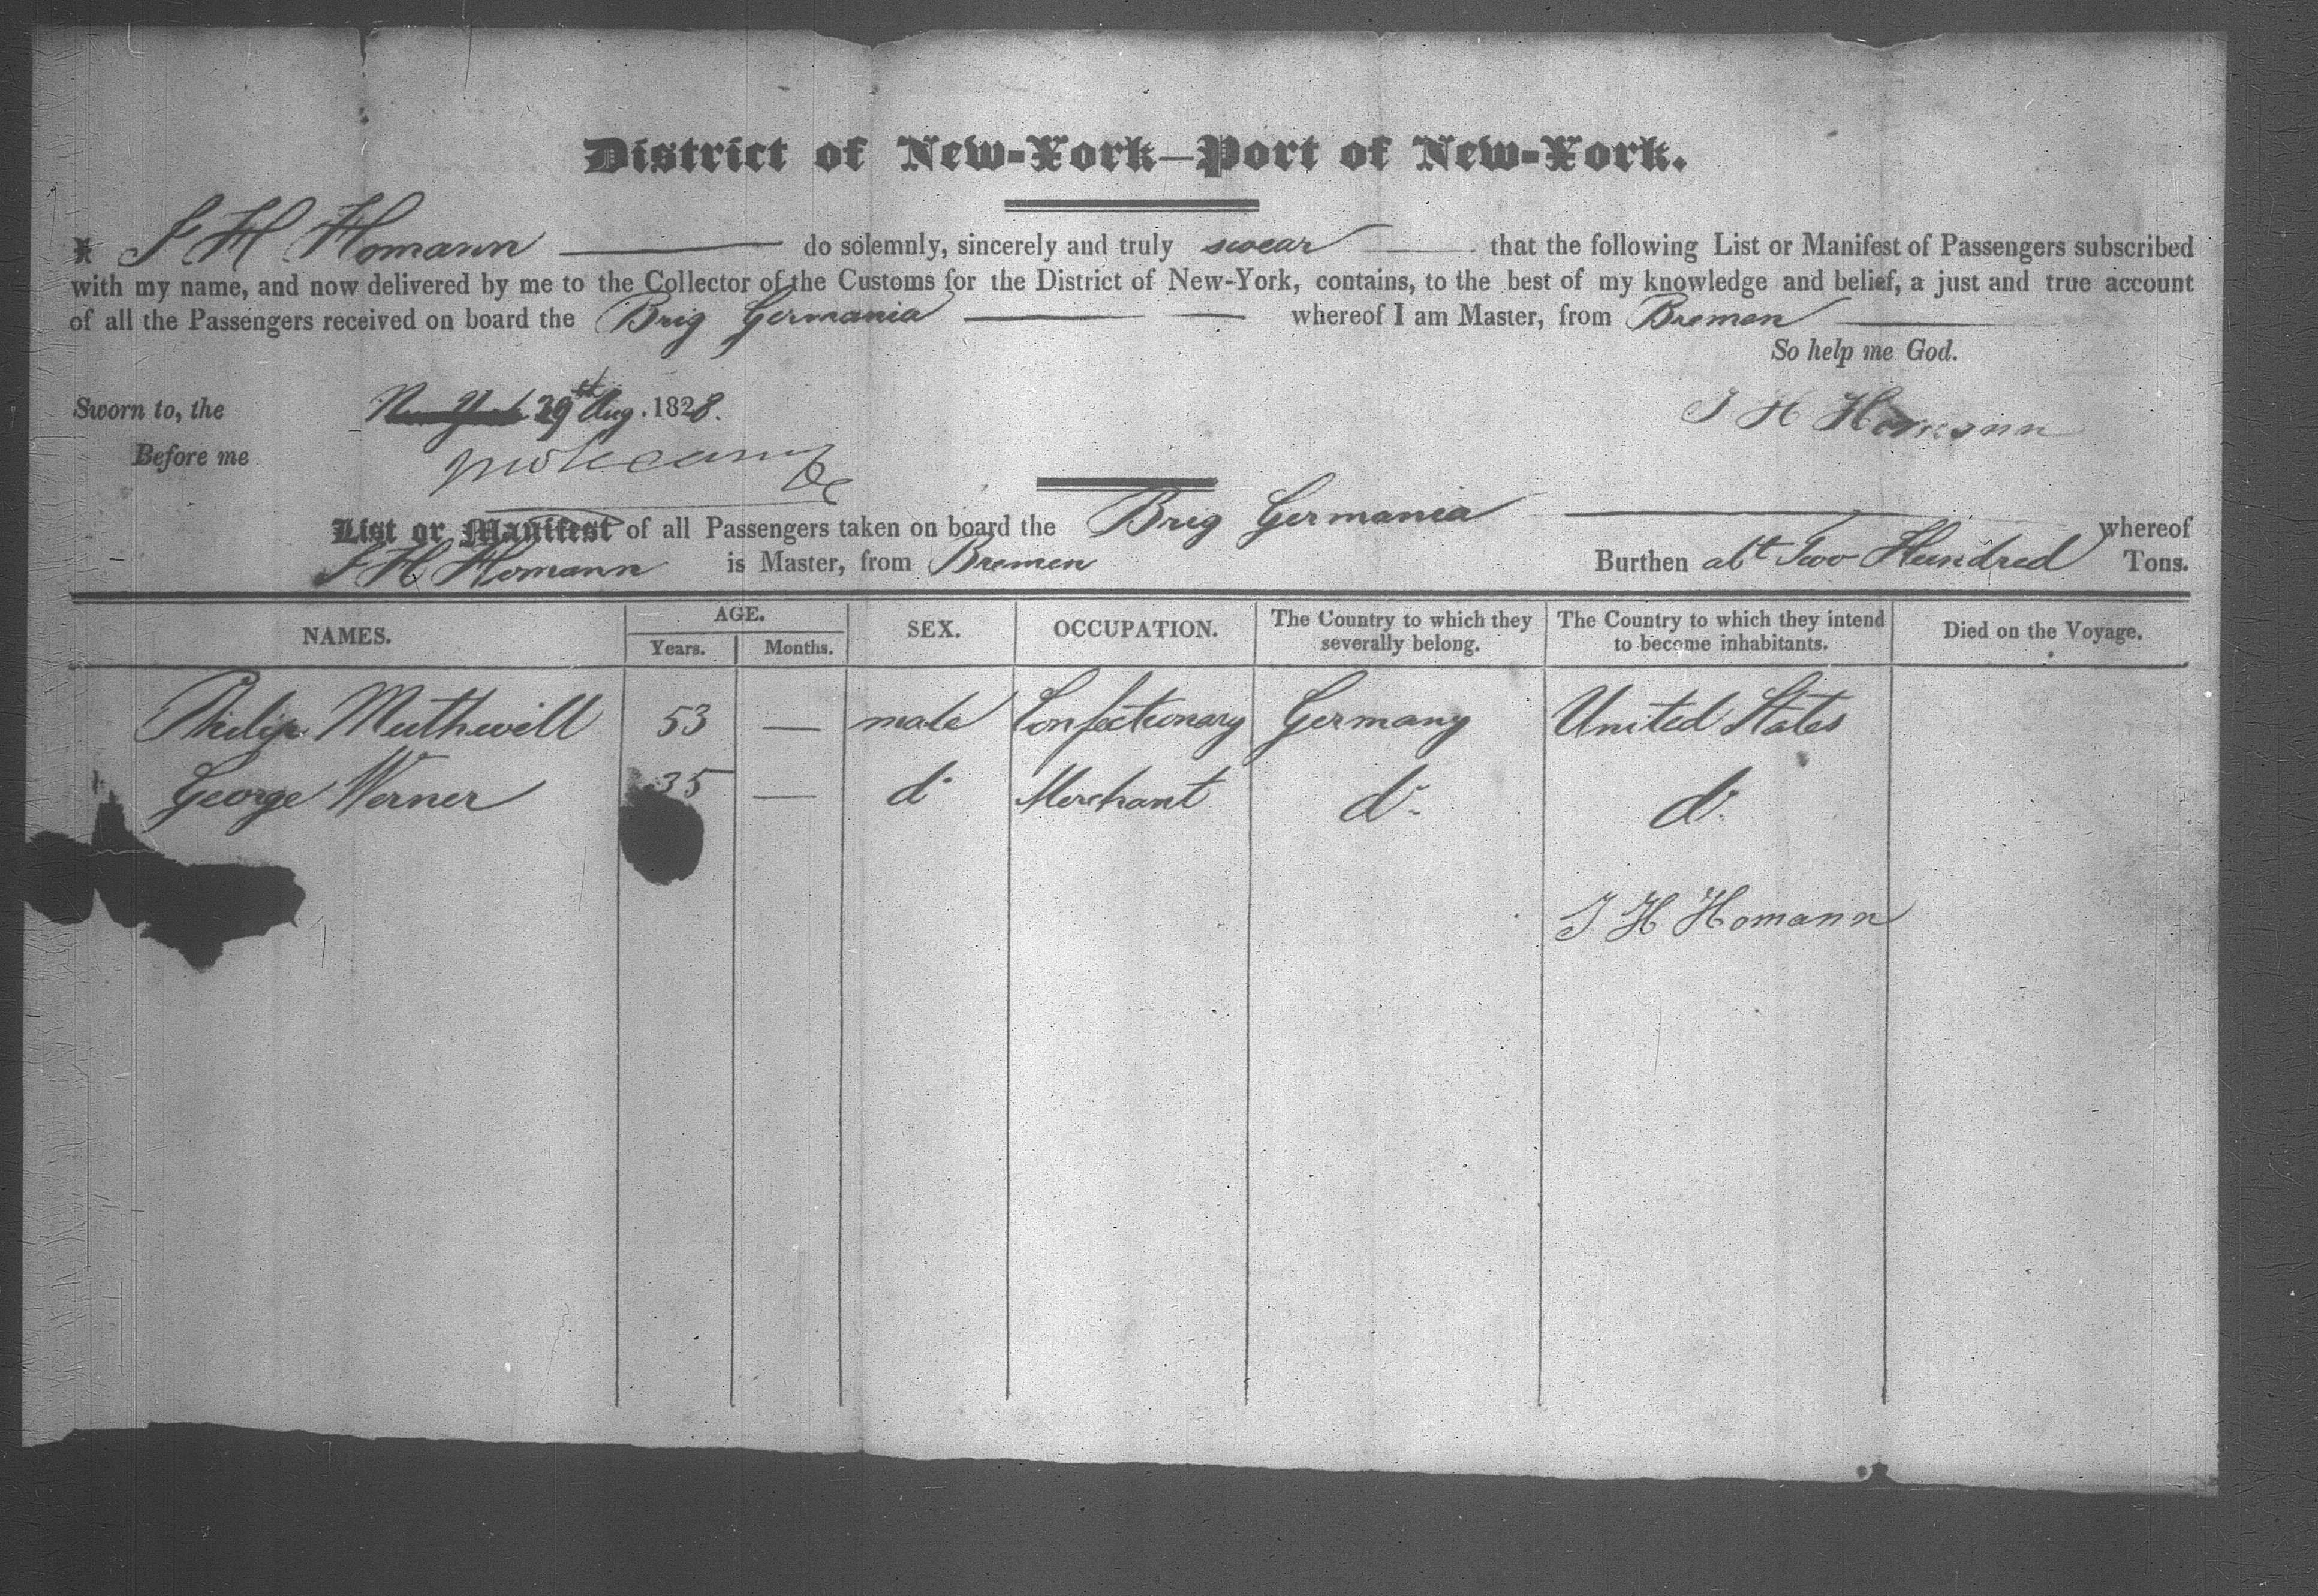 District of New-York—Port of New-York.
I J H Homann do solemnly, sincerely and truly swear that the following List or Manifest of Passengers subscribed
with my name, and now delivered by me to the Collector of the Customs for the District of New-York, contains, to the best of my knowledge and belief, a just and true account
of all the Passengers received on board the Brig Germania whereof I am Master, from Bremen
So help me God.
Sworn to, the 29st Aug. 1828.
J H Homann
Before me
List or Manifest of all Passengers taken on board the Brig Germania whereof
J H Homann is Master, from Bremen Burthen abt Two Hundred Tons.
NAMES. AGE. Years. Months. SEX. OCCUPATION. The Country to which they severally belong. The Country to which they intend to become inhabitants. Died on the Voyage.
Philip Muthwill 53 — male Confectionary Germany United States
George Werner 35 — do Merchant do do
J H Homann